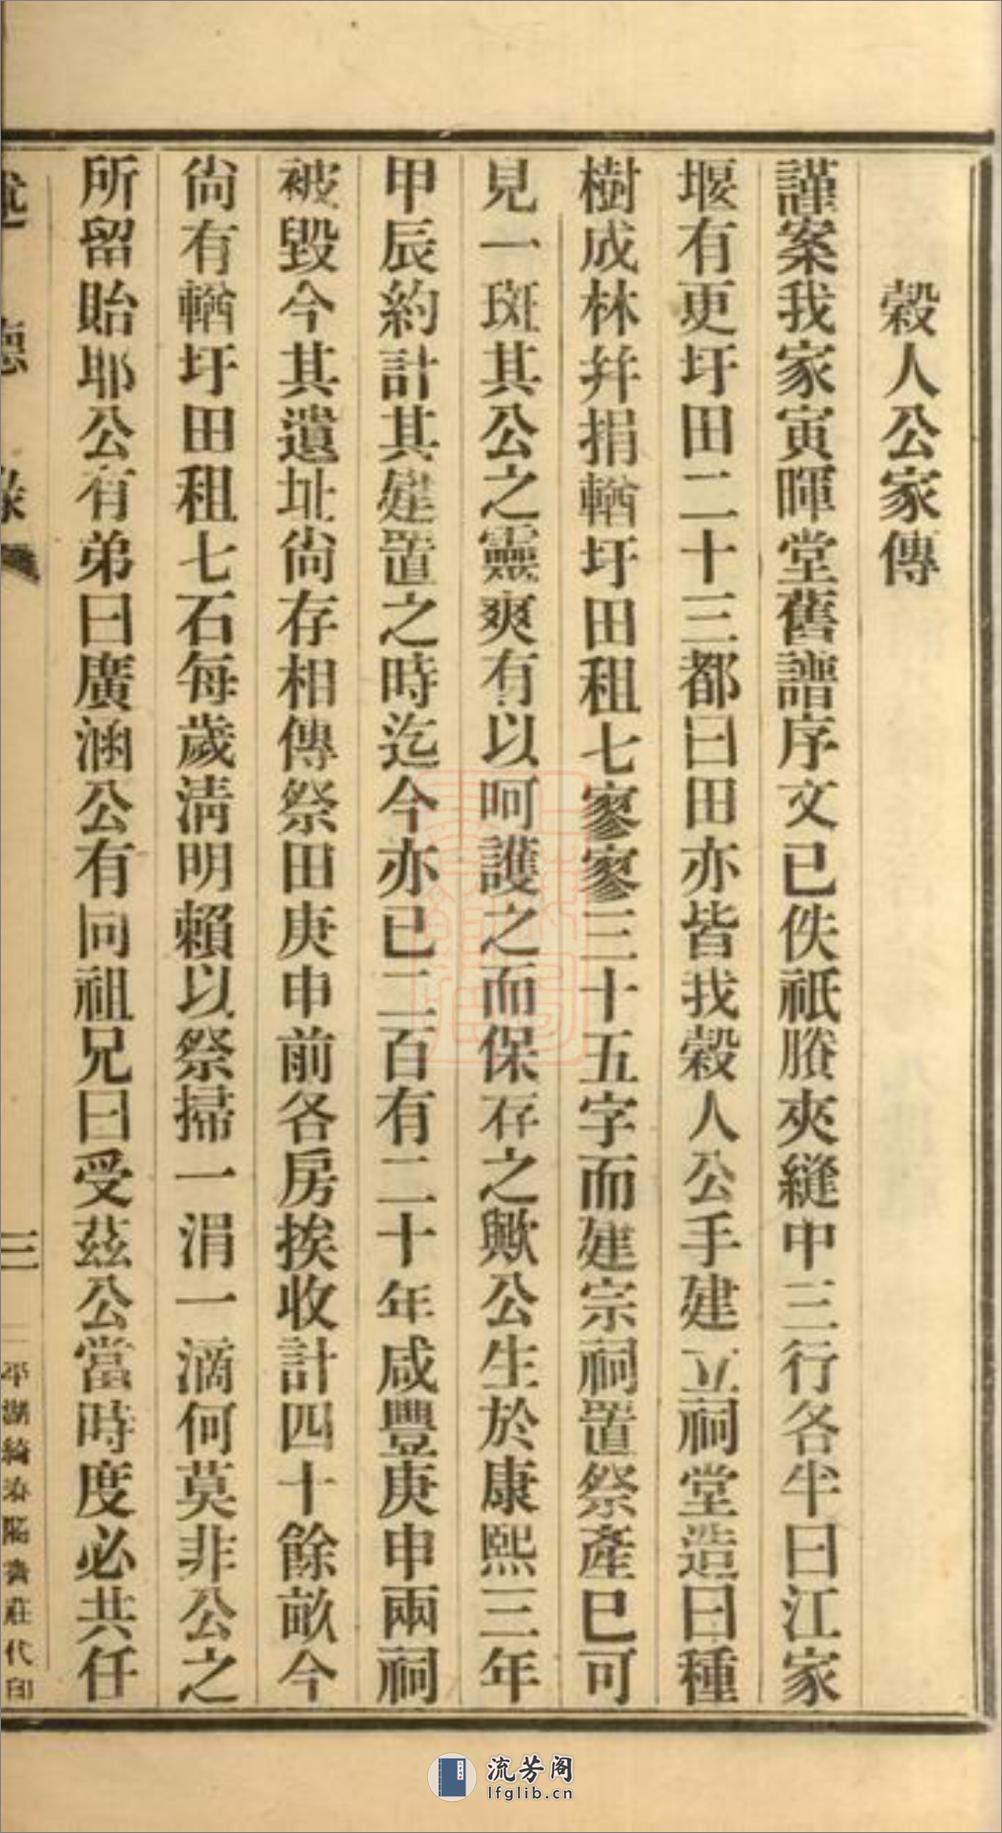 穀人公家傳
謹案我家寅暉堂舊譜序文已佚祇賸夾縫中三行各半曰江家
堰有更圩田二十三都曰田亦皆我穀人公手建立祠堂造曰種
樹成林幷捐輶圩田租七寥寥三十五字而建宗祠置祭產已可
見一斑其公之靈爽有以呵護之而保存之歟公生於康熙三年
甲辰約計其建置之時迄今亦已二百有二十年咸豐庚申兩祠
被毀今其遺址尙存相傳祭田庚申前各房挨收計四十餘畝今
尙有輶圩田租七石每歲淸明賴以祭掃一涓一滴何莫非公之
所留貽耶公有弟曰廣涵公有同祖兄曰受茲公當時度必共任
述德錄
三
平湖綺春閣賚莊代印
流芳阁
lfglib.cn